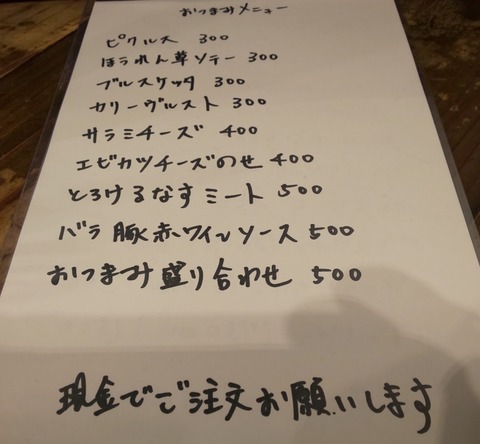 おつまみメニュー
ピクルス 300
ほうれん草ソテー 300
ブルスケッタ 300
カリーヴルスト 300
サラミチーズ 400
エビカツチーズのせ 400
とろけるなすミート 500
バラ豚赤ワインソース 500
おつまみ盛り合わせ 500
現金でご注文お願いします